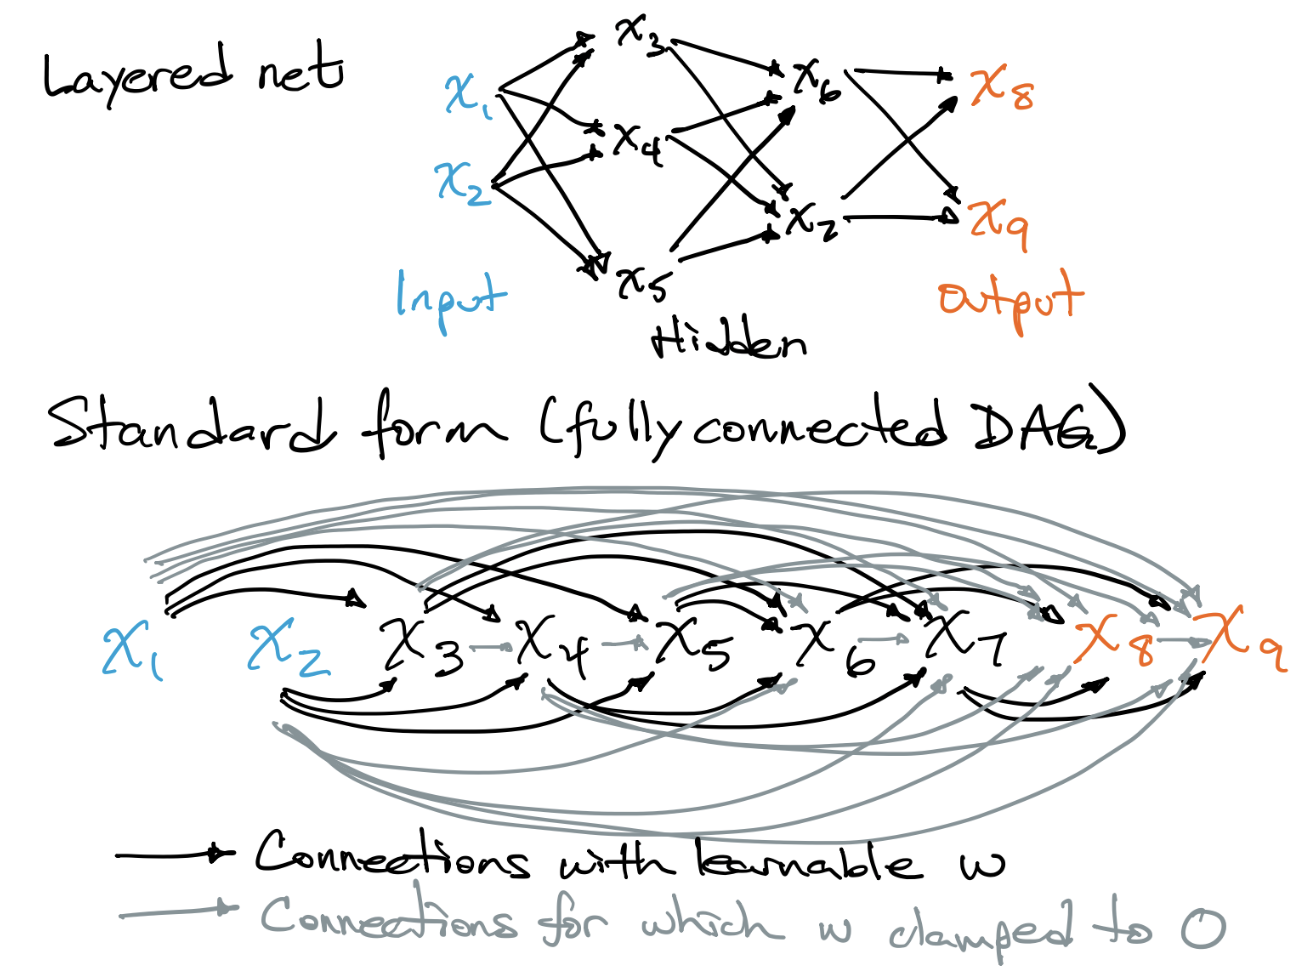 Layered net
x₁
x₂
x₃
x₄
x₅
x₆
x₇
x₈
x₉
Input
Hidden
Output
Standard form (fully connected DAG)
x₁ x₂ x₃ x₄ x₅ x₆ x₇ x₈ x₉
Connections with learnable w
Connections for which w clamped to 0